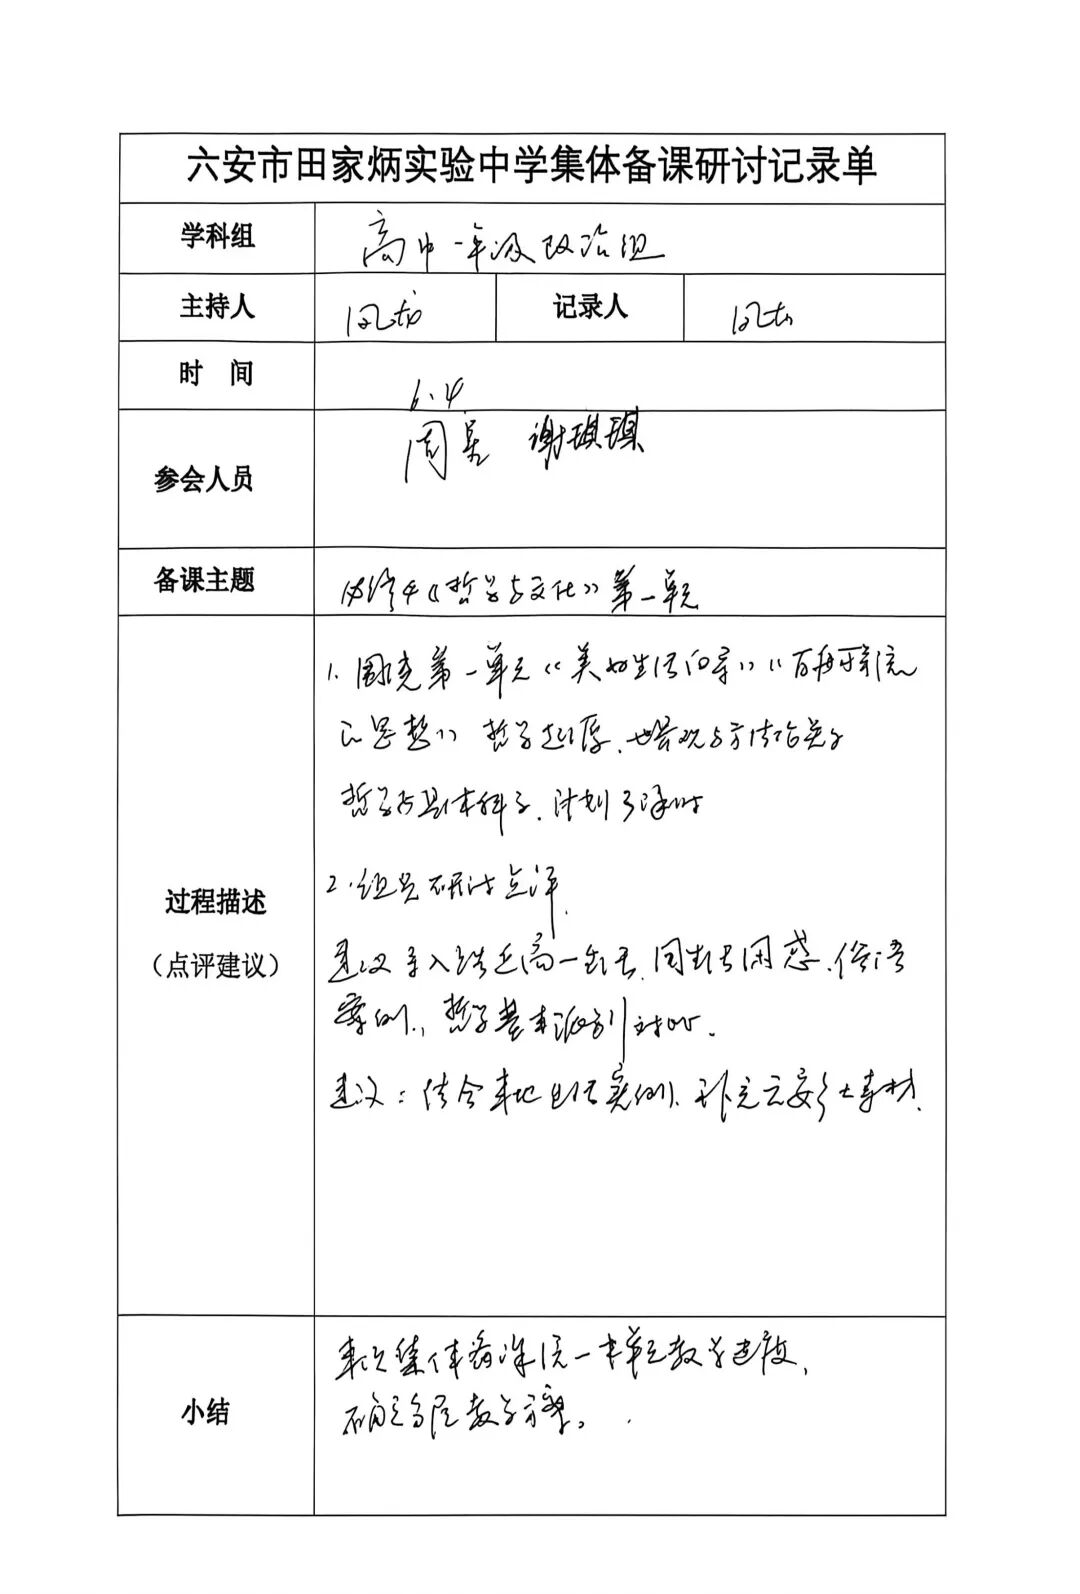 六安市田家炳实验中学集体备课研讨记录单
学科组 高中一年级政治组
主持人 记录人
时 间 6.4
参会人员 周 谢琪琪
备课主题 必修4《哲学与文化》第一单元
1. 围绕第一单元《美好生活向导》《百舸争流
的思想》哲学起源、世界观与方法论关系
哲学与具体科学、计划3课时
2. 组员研讨点评
过程描述
（点评建议）
建议导入贴近高一生活、同生活困惑、俗语
案例、哲学基本派别对比.
建议：结合本地生活实例、补充六安乡土素材.
小结
本次集体备课统一本单元教学进度,
确定分层教学方案。